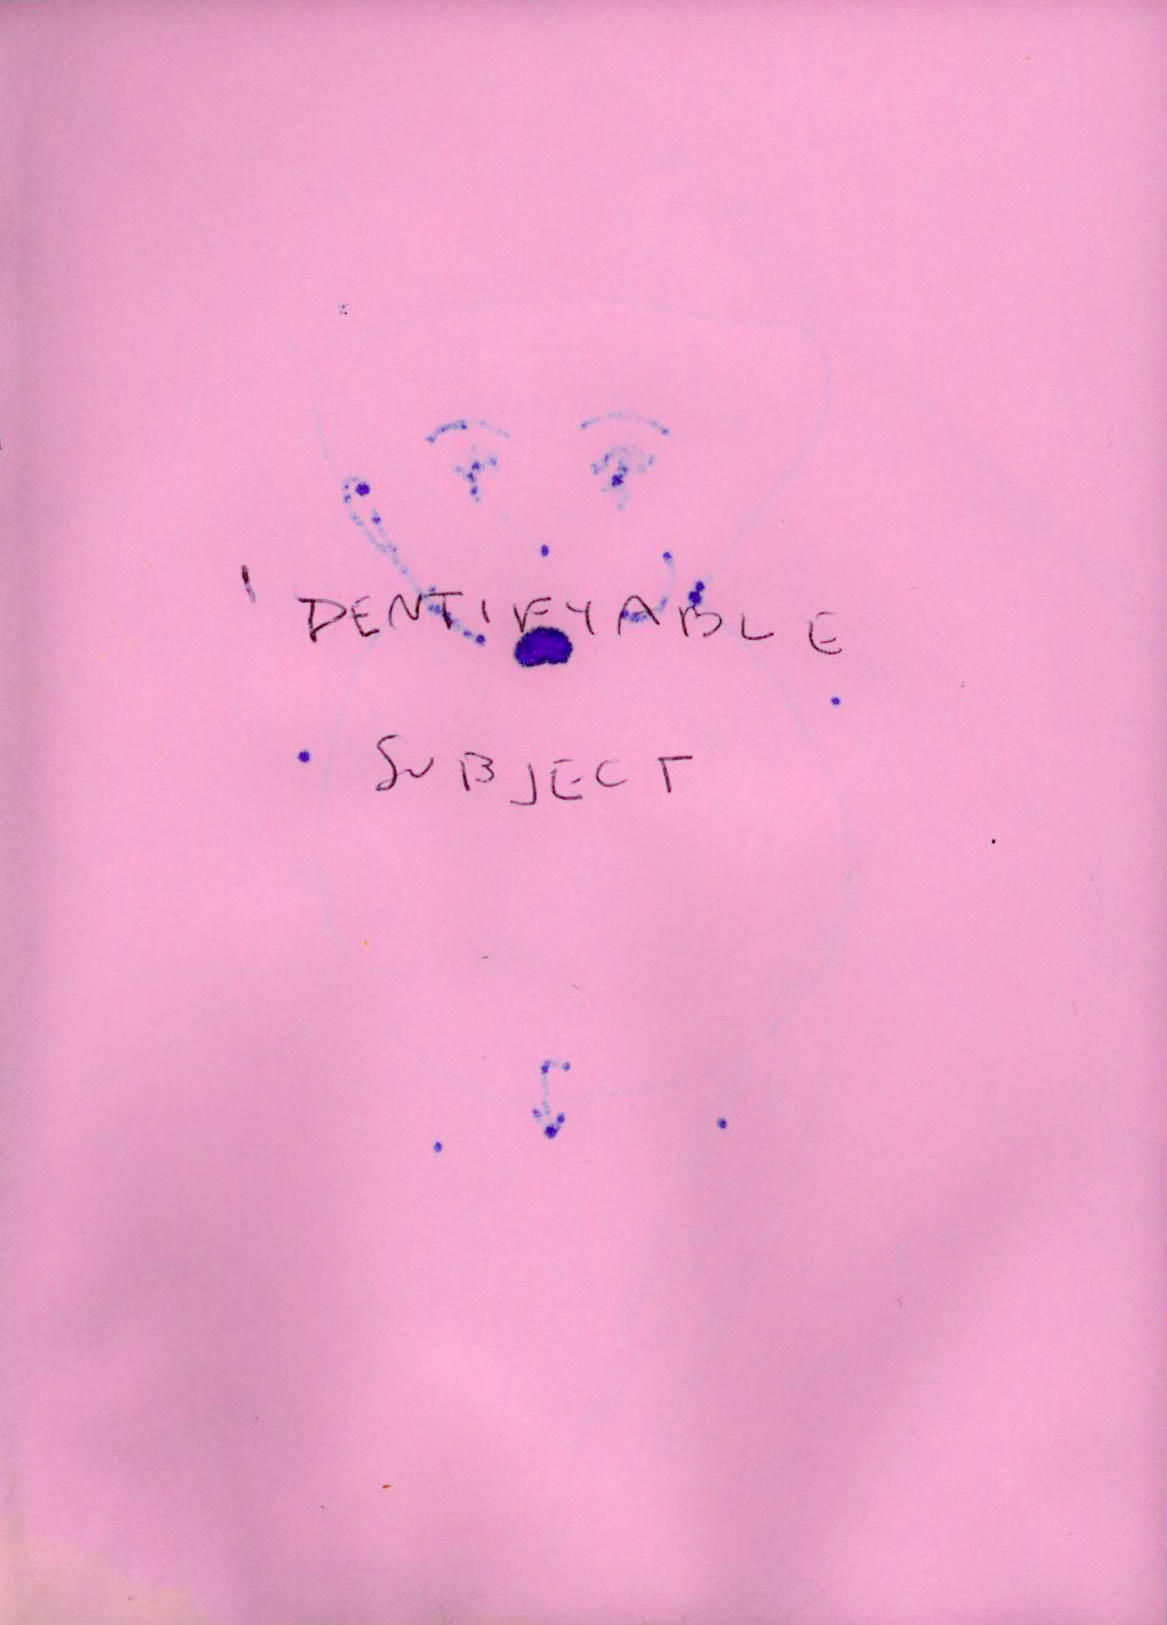 IDENTIFYABLE
SUBJECT